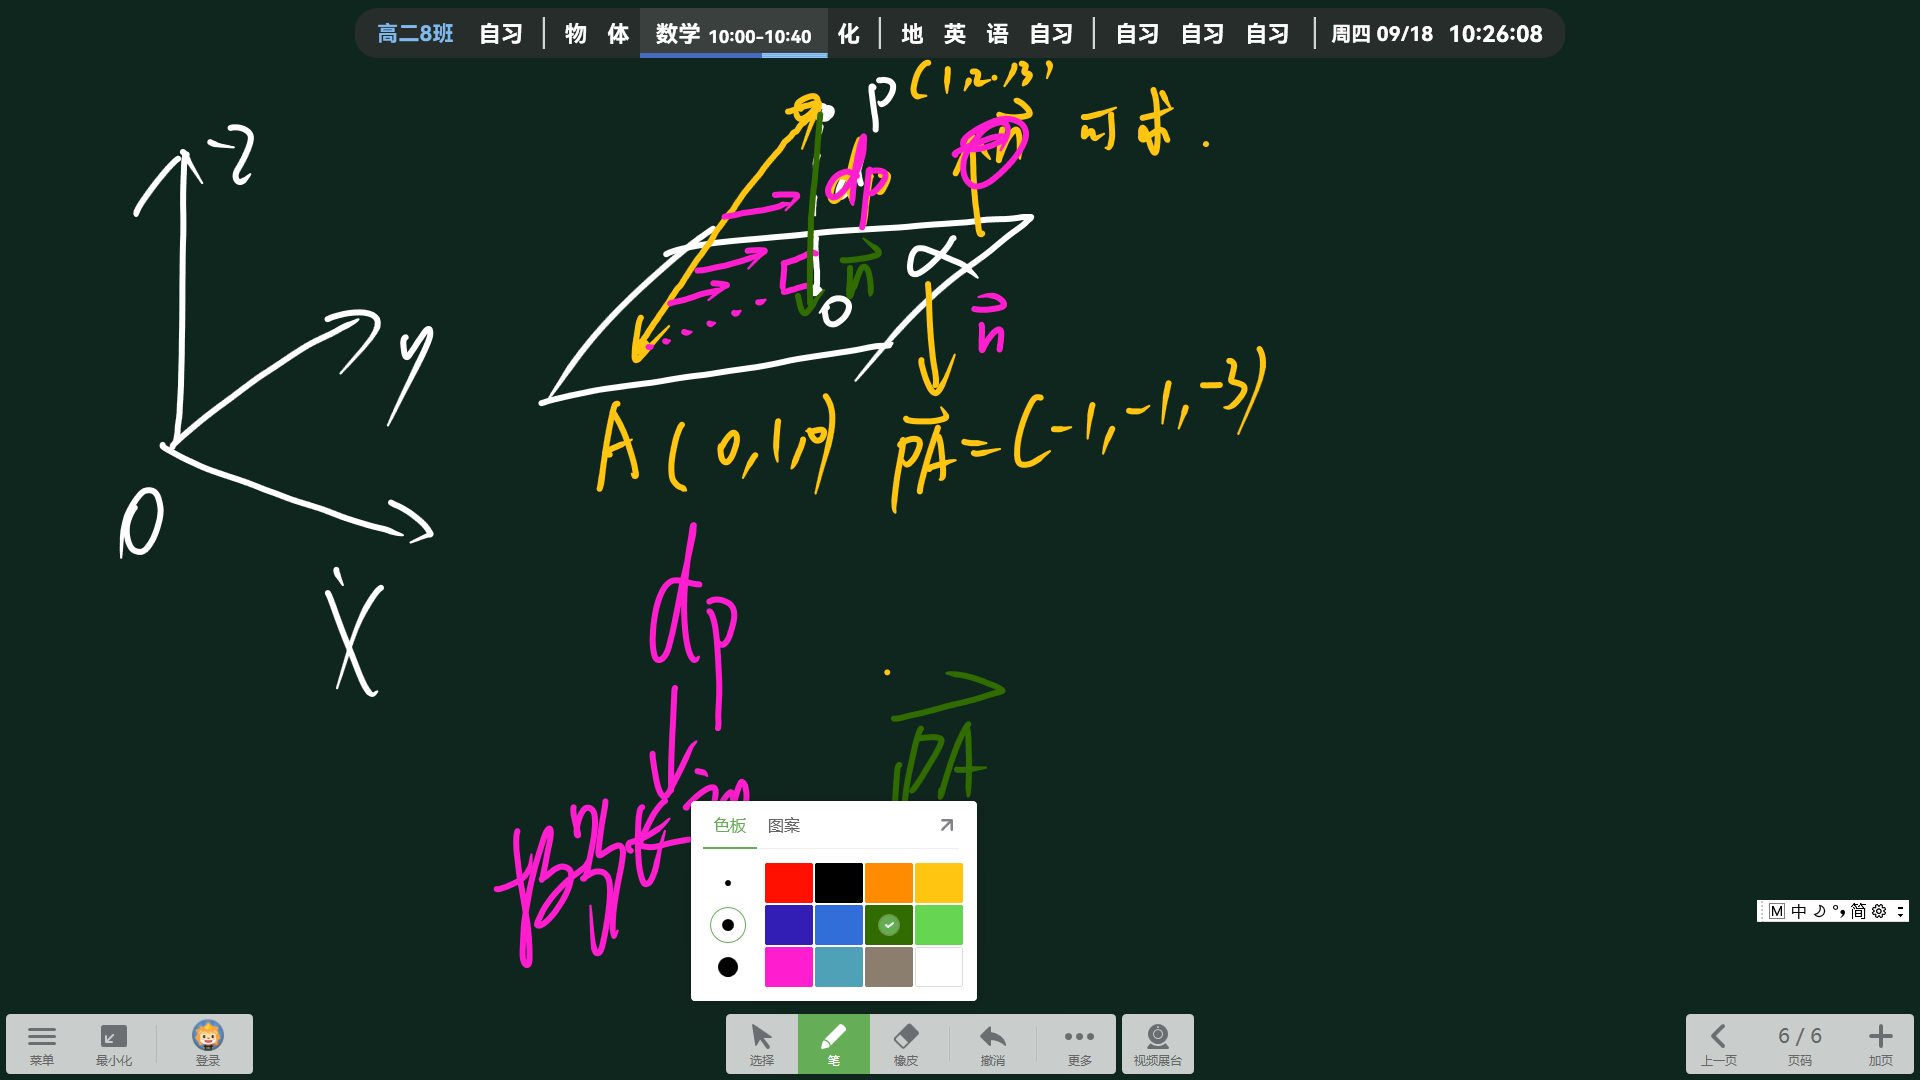 高二8班 自习 物 体 数学 10:00-10:40 化 地 英 语 自习 自习 自习 自习 周四 09/18 10:26:08
P (1,2,3)
z
n 可求.
dp
y
n
α
O
n
A(0,1,0) PA=(-1,-1,-3)
O
x
dp
PA
n
色板 图案
M 中 简
菜单 最小化 登录 选择 笔 橡皮 撤消 更多 视频展台 上一页 6 / 6 页码 加页